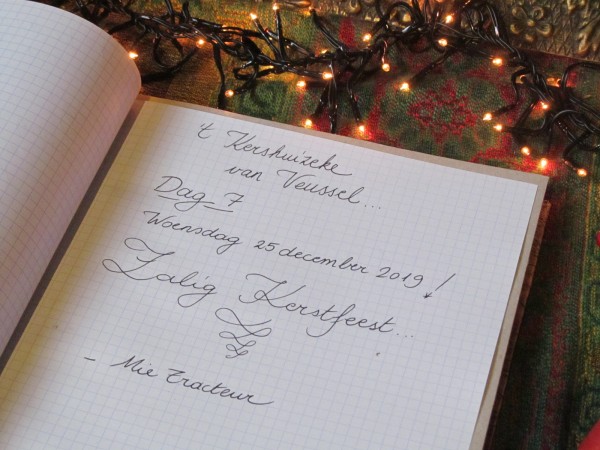 't Kershuizeke
van Veussel...
Dag 7
Woensdag 25 december 2019!
Zalig Kerstfeest...
- Mie Tracteur